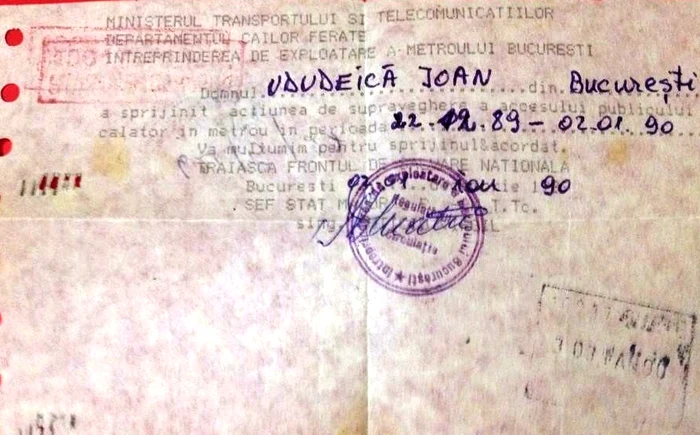 MINISTERUL TRANSPORTULUI SI TELECOMUNICATIILOR
DEPARTAMENTUL CAILOR FERATE
INTREPRINDEREA DE EXPLOATARE A METROULUI BUCURESTI
Domnul UDUDEICĂ IOAN din București
a sprijinit actiunea de supraveghere a accesului publicului
calator in metrou in perioada 22.12.89 - 02.01.90
Va multumim pentru sprijinul acordat.
TRAIASCA FRONTUL DE NATIONALA
Bucuresti 90
SEF STAT
Intreprinderea de Exploatare a Metroului Bucuresti
Regulatia
Circulatie